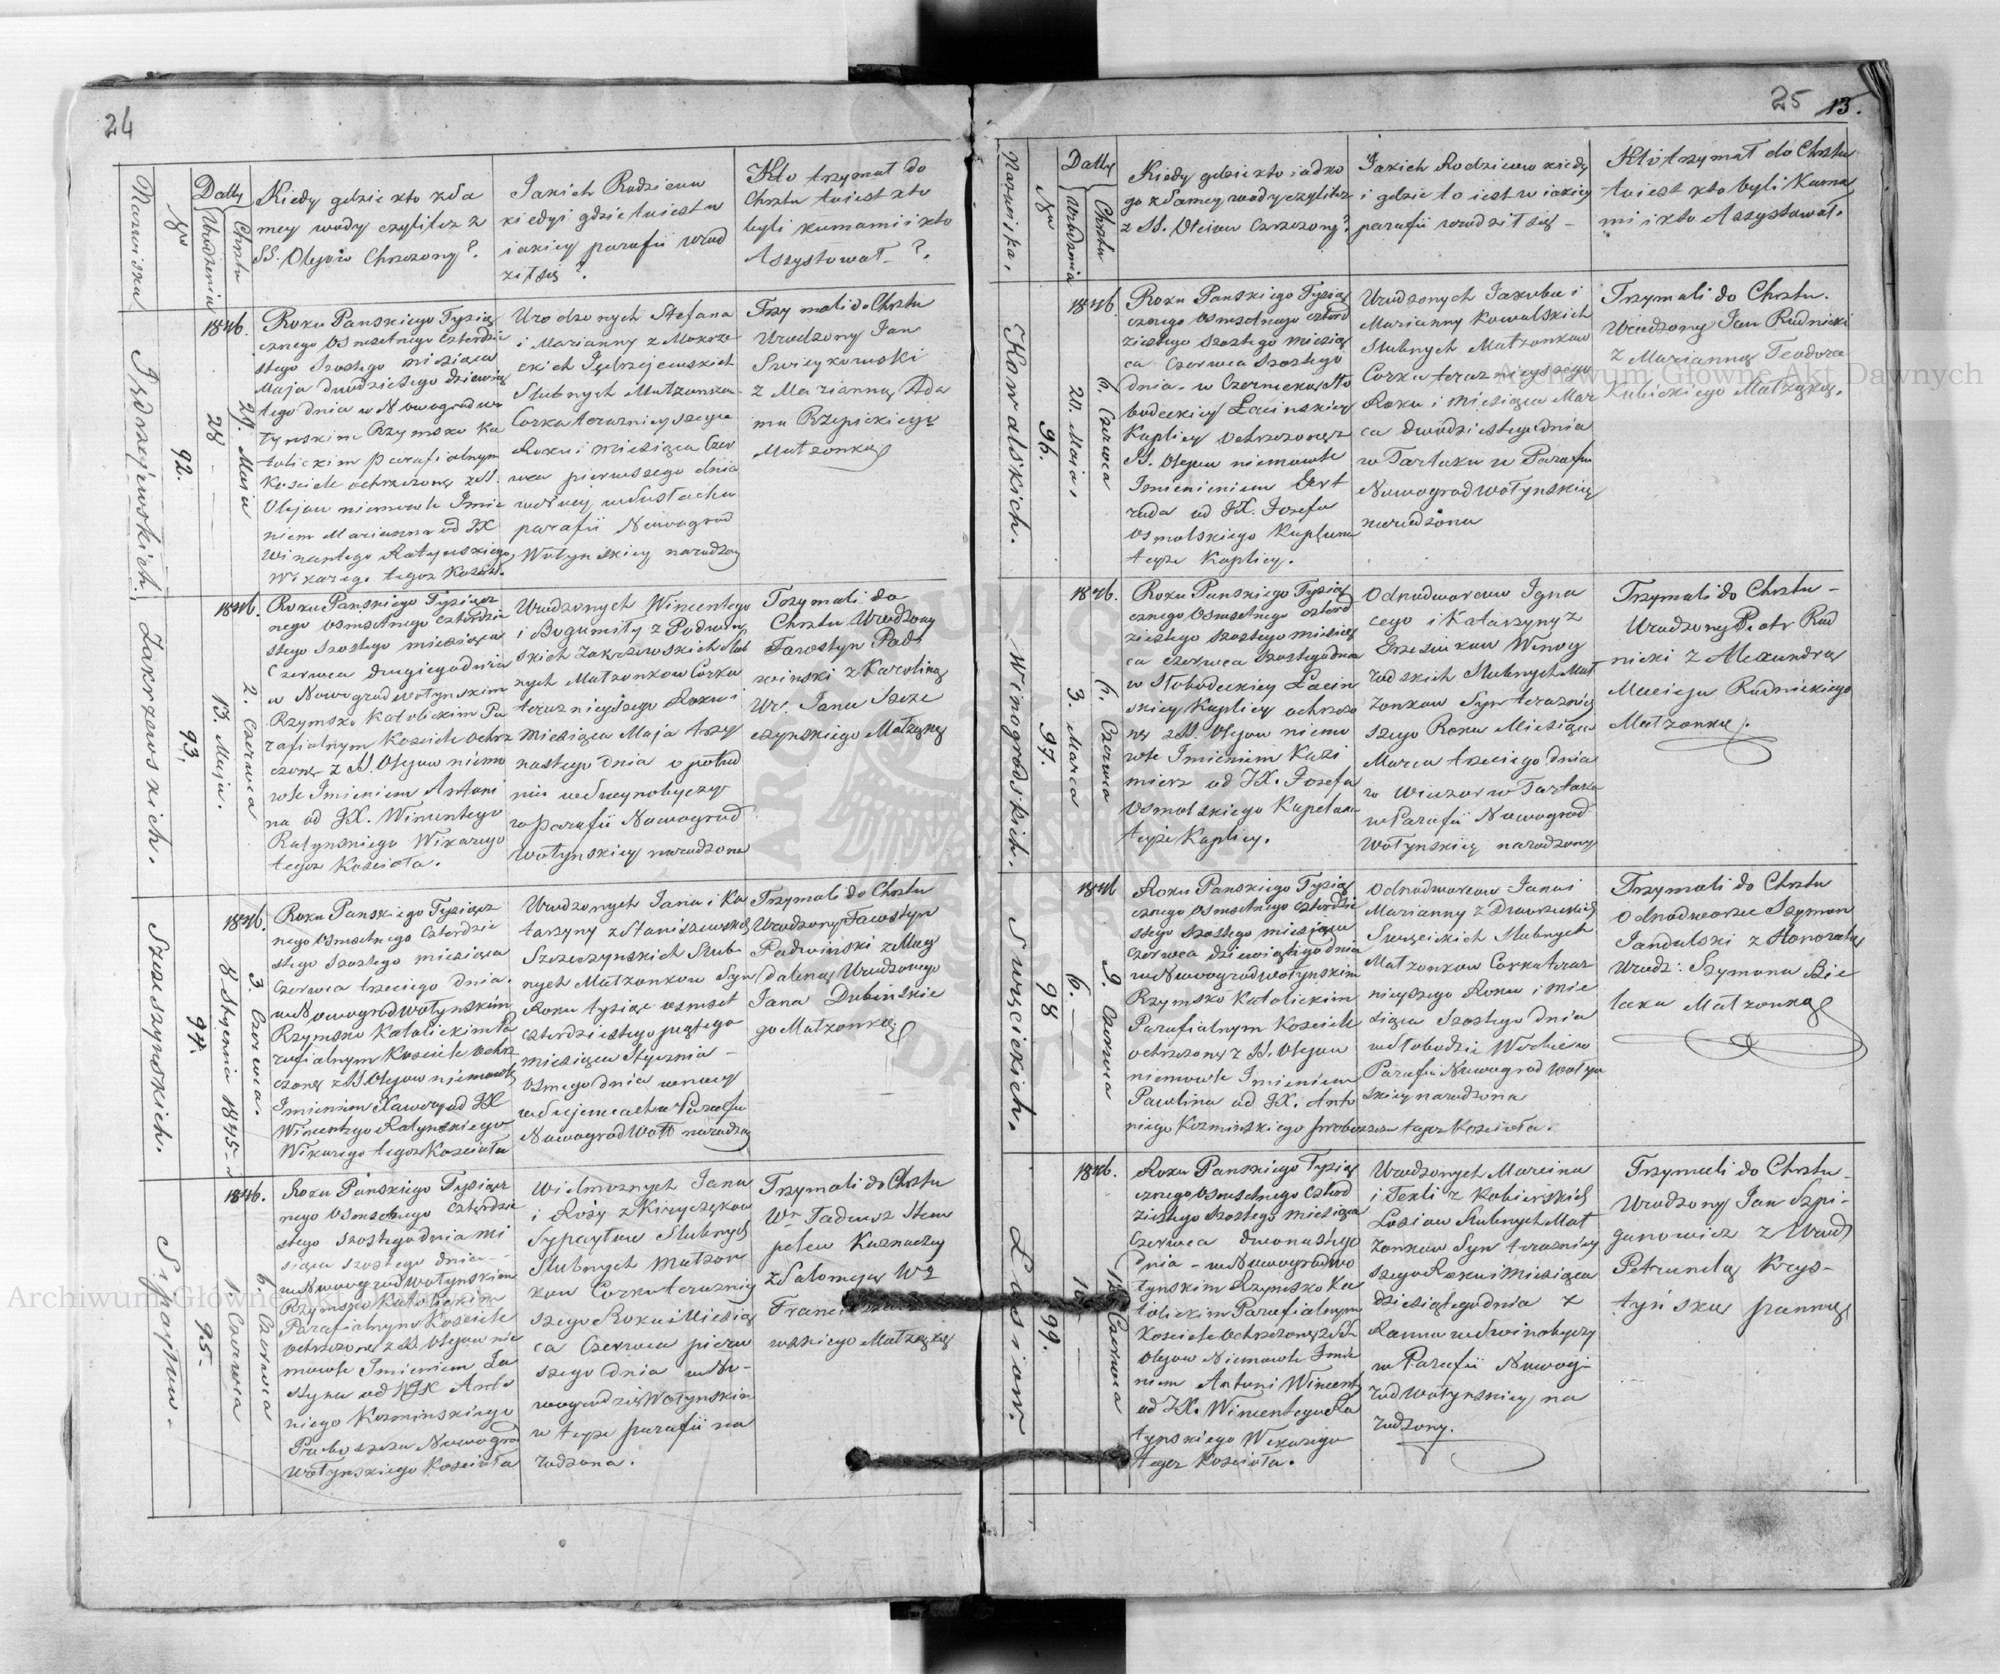 24
Nazwiska
Nra
Datty
Urodzenia
Chrztu
Kiedy gdzie kto z Sa
mey wody czylitez z
SS. Olejów Chrzczony?
Jakich Rodziców
kiedyś gdzie tu iest w
iakiey parafii urod
ził się?
Kto trzymał do
Chrztu tu iest kto
byli kumami i kto
Assystował ?
Jędrzejewskich.
92.
1846.
28
29. Maia
Roku Panskiego Tysią
cznego Osmsetnego Czterdzie
stego Szostego miesiąca
Maja dwudziestego dziewią
tego dnia w Nowogradwo
łynskim Rzymsko Ka
tolickim parafialnym
Kosciele ochrzczoną z SS.
Olejow niemowle Imie
niem Marianna od JX
Wincentego Ratynskiego
Wikarego tegoz Koscioł.
Urodzonych Stefana
i Marianny z Mokrze
ckich Jędrzejewskich
Slubnych Małzonkow
Corka teraznieyszego
Roku i miesiąca Czer
wca pierwszego dnia
parafii Nowograd
Wołynskiey narodzon
Trzymali do Chrztu
Urodzony Jan
Swieykowski
z Marianną Ada
ma Rzepickiego
Małzonką
Zakrzewskich.
93.
1846.
13. Maja.
2. Czerwca
Roku Panskiego Tysiącz
nego Osmsetnego Czterdzie
stego Szostego miesiąca
Czerwca drugiego dnia
w Nowogradwołynskim
Rzymsko Katolickim Pa
rafialnym Kosciele Ochrz
czoną z SS. Olejow niemo
wle Imieniem Antoni
na od JX. Wincentego
Ratynskiego Wikarego
tegoz Koscioła.
Urodzonych Wincentego
i Bogumiły z Podwin
skich Zakrzewskich slub
nych Małzonkow Corka
teraznieyszego Roku i
Miesiąca Maja trzy
nastego dnia o połud
niu
w parafii Nowograd
Wołynskiey narodzona
Trzymali do
Chrztu Urodzony
Fawstyn Pad
winski z Karoliną
Ur. Jana Szcze
czynskiego Małzonką
Szczeszynskich.
94.
1846.
8 Stycznia 1845.
3. Czerwca.
Roku Panskiego Tysiącz
nego Osmsetnego Czterdzie
stego Szostego miesiąca
Czerwca trzeciego dnia.
w Nowogradwołynskim
Rzymsko Katolickim Pa
rafialnym Kosciele Ochrz
czoną z SS Olejow niemowle
Imieniem Xawery od JX
Wincentego Ratynskiego
Wikarego tegoz Koscioła
Urodzonych Jana i Ka
tarzyny z Staniszewskich
Szczeczynskich Slub
nych Małzonkow Syn
Roku tysiąc osmset
czterdziestego piątego
miesiąca Stycznia -
Osmego dnia w nocy
w Parafii
Nowograd Woł narodzon
Trzymali do Chrztu
Urodzony Fawstyn
Padwinski z Mag
daleną Urodzonego
Jana Dubinskie
go Małzonką
Sypaytow.
95.
1846.
1. Czerwca
6. Czerwca
Roku Panskiego Tysiącz
nego Osmsetnego Czterdzie
stego Szostego dnia mi
siąca szostego dnia -
w Nowogradwołynskim
Rzymsko Katolickim
Parafialnym Kosciele
ochrzczona z SS. Olejow nie
mowle Imieniem Ju
styna od WJX Anto
niego Kozminskiego
Proboszcza Nowograd
Wołynskiego Koscioła
Wielmoznych Jana
i Rozy z Kiryczykow
Sypaytow Slubnych
Slubnych Małzon
kow Corka terazniey
szego Roku i Miesią
ca Czerwca pierw
szego dnia w No-
wogradzie Wołynskim
w teyze parafii na
rodzona.
Trzymali do Chrztu
Wny Tadeusz Stem
pelew Kaznaczey
z Salomeją W
Franci
wskiego Małzonką
25
13.
Nazwiska.
Nra
Datty
Urodzenia
Chrztu
Kiedy gdzie kto iadko
go z Samey wody czylitez
z SS. Oleiow Chrzczony?
Jakich Rodzicow kiedy
i gdzie to iest w iakiey
parafii urodził się -
Kto trzymał do Chrztu
to iest kto byli Kuma
mi i kto Assystował.
Kowalskich.
96.
1846.
20. Maia.
6. Czerwca
Roku Panskiego Tysią
cznego Osmsetnego czterd
ziestego szostego miesią
ca Czerwca Szostego
dnia. w Czernicko Sło
bodeckiey Łacinskiey
Kaplicy Ochrzczoną z
SS. Olejow niemowle
Imienieniem Gert
ruda od JX. Jozefa
Osmolskiego Kapelana
teyże Kaplicy.
Urodzonych Jakuba i
Marianny Kowalskich
Slubnych Małzonkow
Corka teraznieyszego
Roku i Miesiąca Mar
ca dwudziestego dnia
w Tartaku w Parafii
Nowogradwołynskiey
narodzona
Trzymali do Chrztu.
Urodzony Jan Rudnicki
z Marianną Teodora
Kubickiego Małzonką.
Winogrodskich.
97.
1846.
3. Marca
6. Czerwca
Roku Panskiego Tysią
cznego Osmsetnego czterd
ziestego szostego miesią
ca czerwca szostego dnia
w Słobodeckiey Łacin
skiey Kaplicy ochrzczo
ną z SS. Olejow niemo
wle Imieniem Kazi
mierz od JX. Jozefa
Osmolskiego Kapelana
teyże Kaplicy.
Odnodworcow Igna
cego i Katarzyny z
Grzesiukow Winog
rodskich Slubnych Mał
zonkow Syn terazniey
szego Roku Miesiąca
Marca trzeciego dnia
w wieczor w Tartaku
w Parafii Nowograd
Wołynskiey narodzony
Trzymali do Chrztu -
Urodzony Piotr Rud
nicki z Alexandrą
Macieja Rudnickiego
Małzonką.
Swięcickich.
98
1846
6.
9. Czerwca
Roku Panskiego Tysią
cznego Osmsetnego Czterdzie
stego szostego miesiąca
Czerwca dziewiątego dnia
w Nowogradwołynskim
Rzymsko Katolickim
Parafialnym Kosciele
ochrzczoną z SS. Olejow
niemowle Imieniem
Paulina od JX. Anto
niego Kozminskiego proboszcza tegoz Koscioła.
Odnodworcow Jana i
Marianny z Dworzeckich
Swięcickich Slubnych
Małzonkow Corka teraz
nieyszego Roku i mie
siąca Szostego dnia
w Słobodzie w
Parafii Nowograd Wołyn
skiey narodzona
Trzymali do Chrztu
Odnodworzec Szymon
Jandulski z Honoratą
Urodz: Szymona Bie
laka Małzonką
Łosiow.
99.
1846.
10
12 Czerwca
Roku Panskiego Tysią
cznego Osmsetnego Czterd
ziestego Szostego miesiąca
Czerwca dwunastego
dnia - w Nowogradwo
łynskim Rzymsko Ka
tolickim Parafialnym
Kosciele Ochrzczoną z SS.
Olejow Niemowle Imie
niem Antoni Wincenty
od JX. Wincentego Ra
tynskiego Wikarego
tegoz Koscioła.
Urodzonych Marcina
i Tekli z Kobierskich
Łosiow Slubnych Mał
zonkow Syn terazniey
szego Roku i Miesiąca
dziesiątego dnia z
Ranna w Swinobyczy
w Parafii Nowog-
rodwołynskiey na
rodzony.
Trzymali do Chrztu
Urodzony Jan Szpi-
ganowicz z Urod
Petrunelą Krys-
tyńską panną
Archiwum Główne Akt Dawnych
Archiwum Główne Akt Dawnych